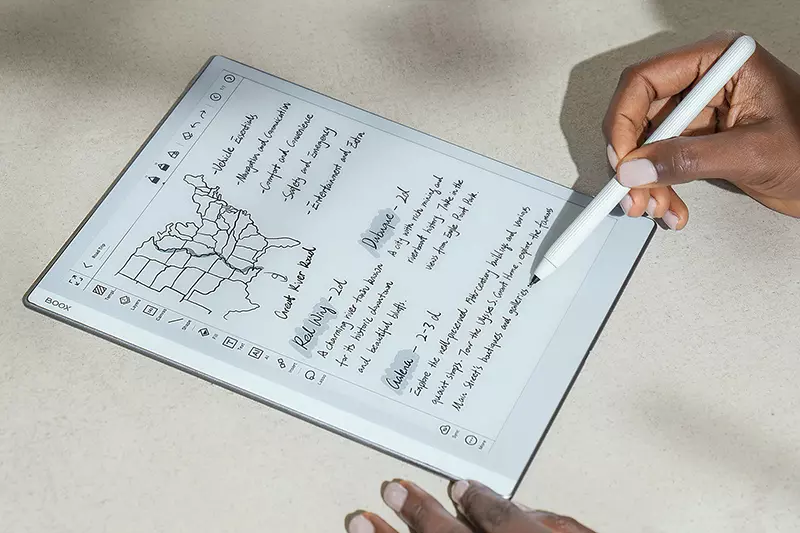 BOOX
Road Trip
Layers
Canvas
Shape
Fill
Text
AI
Insert
Lasso
Sync
More
-Vehicle Essentials
-Navigation and Communication
-Comfort and Convenience
-Safety and Emergency
-Entertainment and Extra
Great River Road
Red Wing - 2d
A charming river town known
for its historic downtown
and beautiful bluffs.
Dubuque - 2d
A city with rich mining and
riverboat history. Take in the
views from Eagle Point Park.
Galena - 2-3 d
Explore the well-preserved 19th-century buildings and various
quaint shops. Tour the Ulysses S. Grant Home, explore the famous
Main Street's boutiques and galleries.